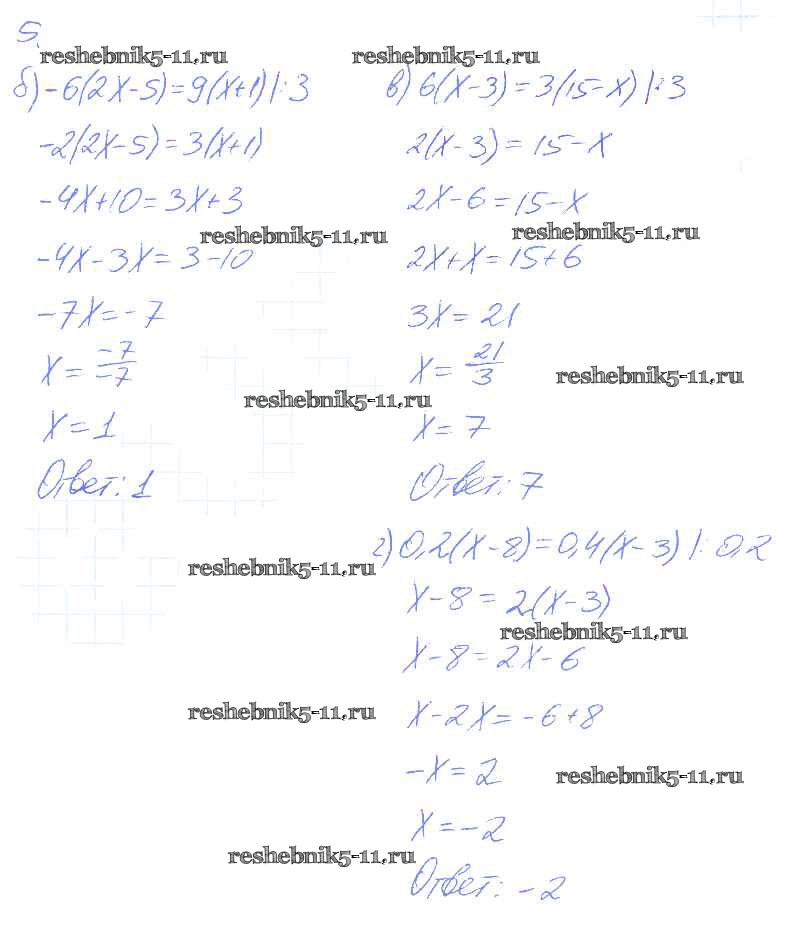 5.
reshebnik5-11.ru
reshebnik5-11.ru
б) -6(2x-5)=9(x+1) |:3
-2(2x-5)=3(x+1)
-4x+10=3x+3
reshebnik5-11.ru
-4x-3x=3-10
-7x=-7
x=-7/-7
reshebnik5-11.ru
x=1
Ответ: 1
в) 6(x-3)=3(15-x) |:3
2(x-3)=15-x
2x-6=15-x
reshebnik5-11.ru
2x+x=15+6
3x=21
x=21/3
reshebnik5-11.ru
x=7
Ответ: 7
reshebnik5-11.ru
г) 0,2(x-8)=0,4(x-3) |:0,2
x-8=2(x-3)
reshebnik5-11.ru
x-8=2x-6
reshebnik5-11.ru
x-2x=-6+8
-x=2
reshebnik5-11.ru
x=-2
reshebnik5-11.ru
Ответ: -2